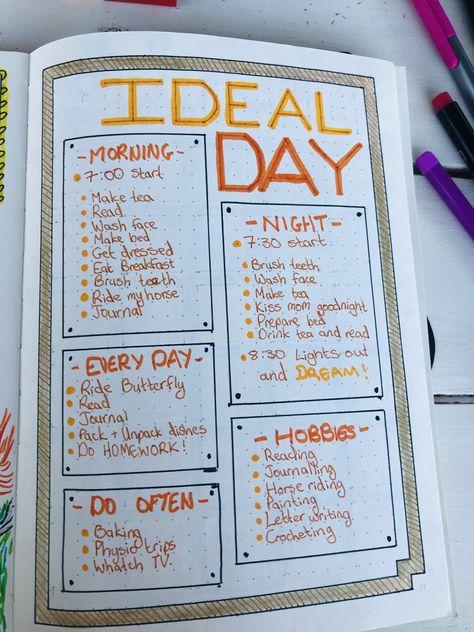 IDEAL
DAY
- MORNING -
7:00 start
Make tea
Read
Wash face
Make bed
Get dressed
Eat Breakfast
Brush teeth
Ride my horse
Journal
- NIGHT -
7:30 start:
Brush teeth
Wash face
Make tea
Kiss mom goodnight
Prepare bed
Drink tea and read
8:30 Lights out
and DREAM!
- EVERY DAY -
Ride Butterfly
Read
Journal
Pack + Unpack dishes
Do HOMEWORK!
- HOBBIES -
Reading
Journalling
Horse riding
Painting
Letter writing
Crocheting
- DO OFTEN -
Baking
Physio trips
Whatch TV.